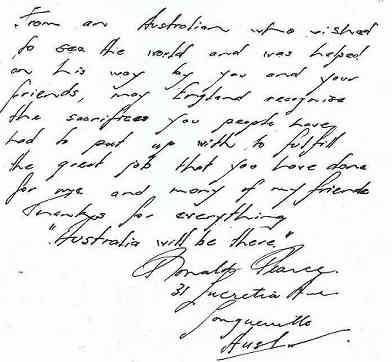 From an Australian who wished
to see the world and was helped
on his way by you and your
friends, may England recognise
the sacrifices you people have
had to put up with to fulfill
the great job that you have done
for me and many of my friends
Thankyo for everything
"Australia will be there"
Ronald Pearce.
31 Lucretia Ave
Longueville
Aust